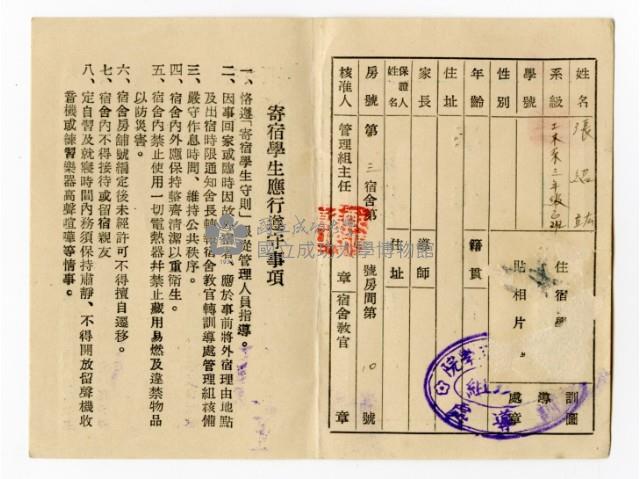 姓名 張紹竑
系級 土木系三年級乙班
學號
性別
年齡 籍貫
住址
家長 導師
保證人姓名 住址
房號 第三宿舍第 號房間第 10 號
核准人 管理組主任 章 宿舍教官 章
住宿
貼相片
訓導處圖章
國立成功大學博物館
寄宿學生應行遵守事項
一、恪遵「寄宿學生守則」服從管理人員指導。
二、因事回家或臨時因故外宿者、應於事前將外宿理由地點
及出宿時限通知舍長轉報宿舍教官轉訓導處管理組核備
三、嚴守作息時間、維持公共秩序。
四、宿舍內外應保持整齊清潔以重衛生。
五、宿舍內禁止使用一切電熱器并禁止藏用易燃及違禁物品
以防災害。
六、宿舍房舖號編定後未經許可不得擅自遷移。
七、宿舍內不得接待或留宿親友
八、定自習及就寢時間內務須保持肅靜、不得開放留聲機收
音機或練習樂器高聲喧嘩等情事。